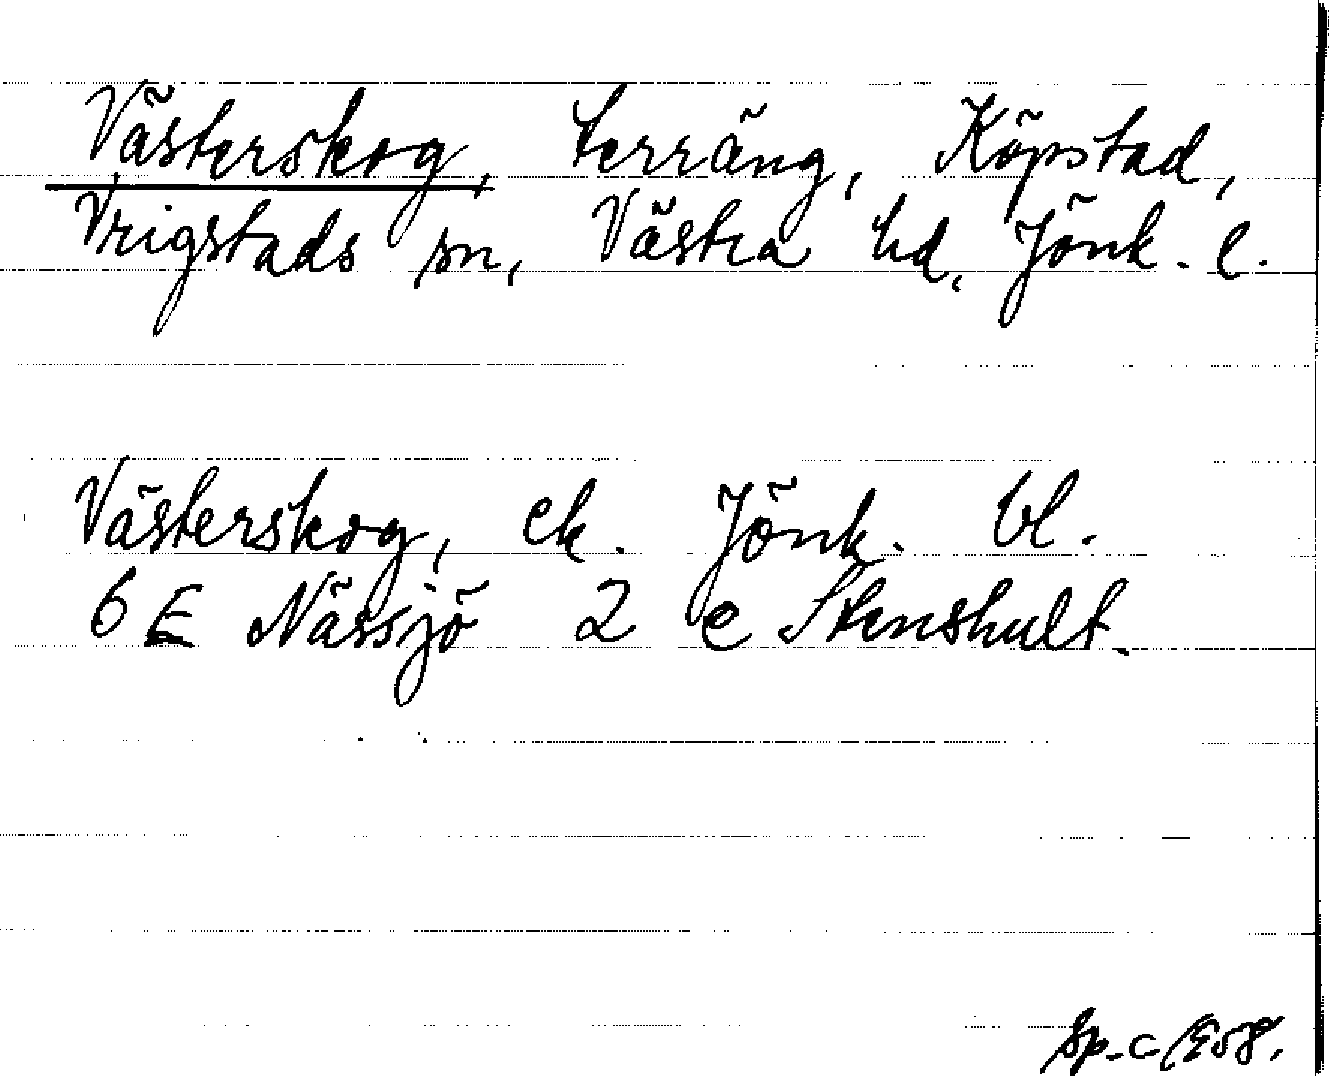 Västerskog, terräng, Köpstad,
Vrigstads sn, Västra hd, Jönk. l.
Västerskog, ek. Jönk. bl.
6 E Nässjö 2 e Stenshult.